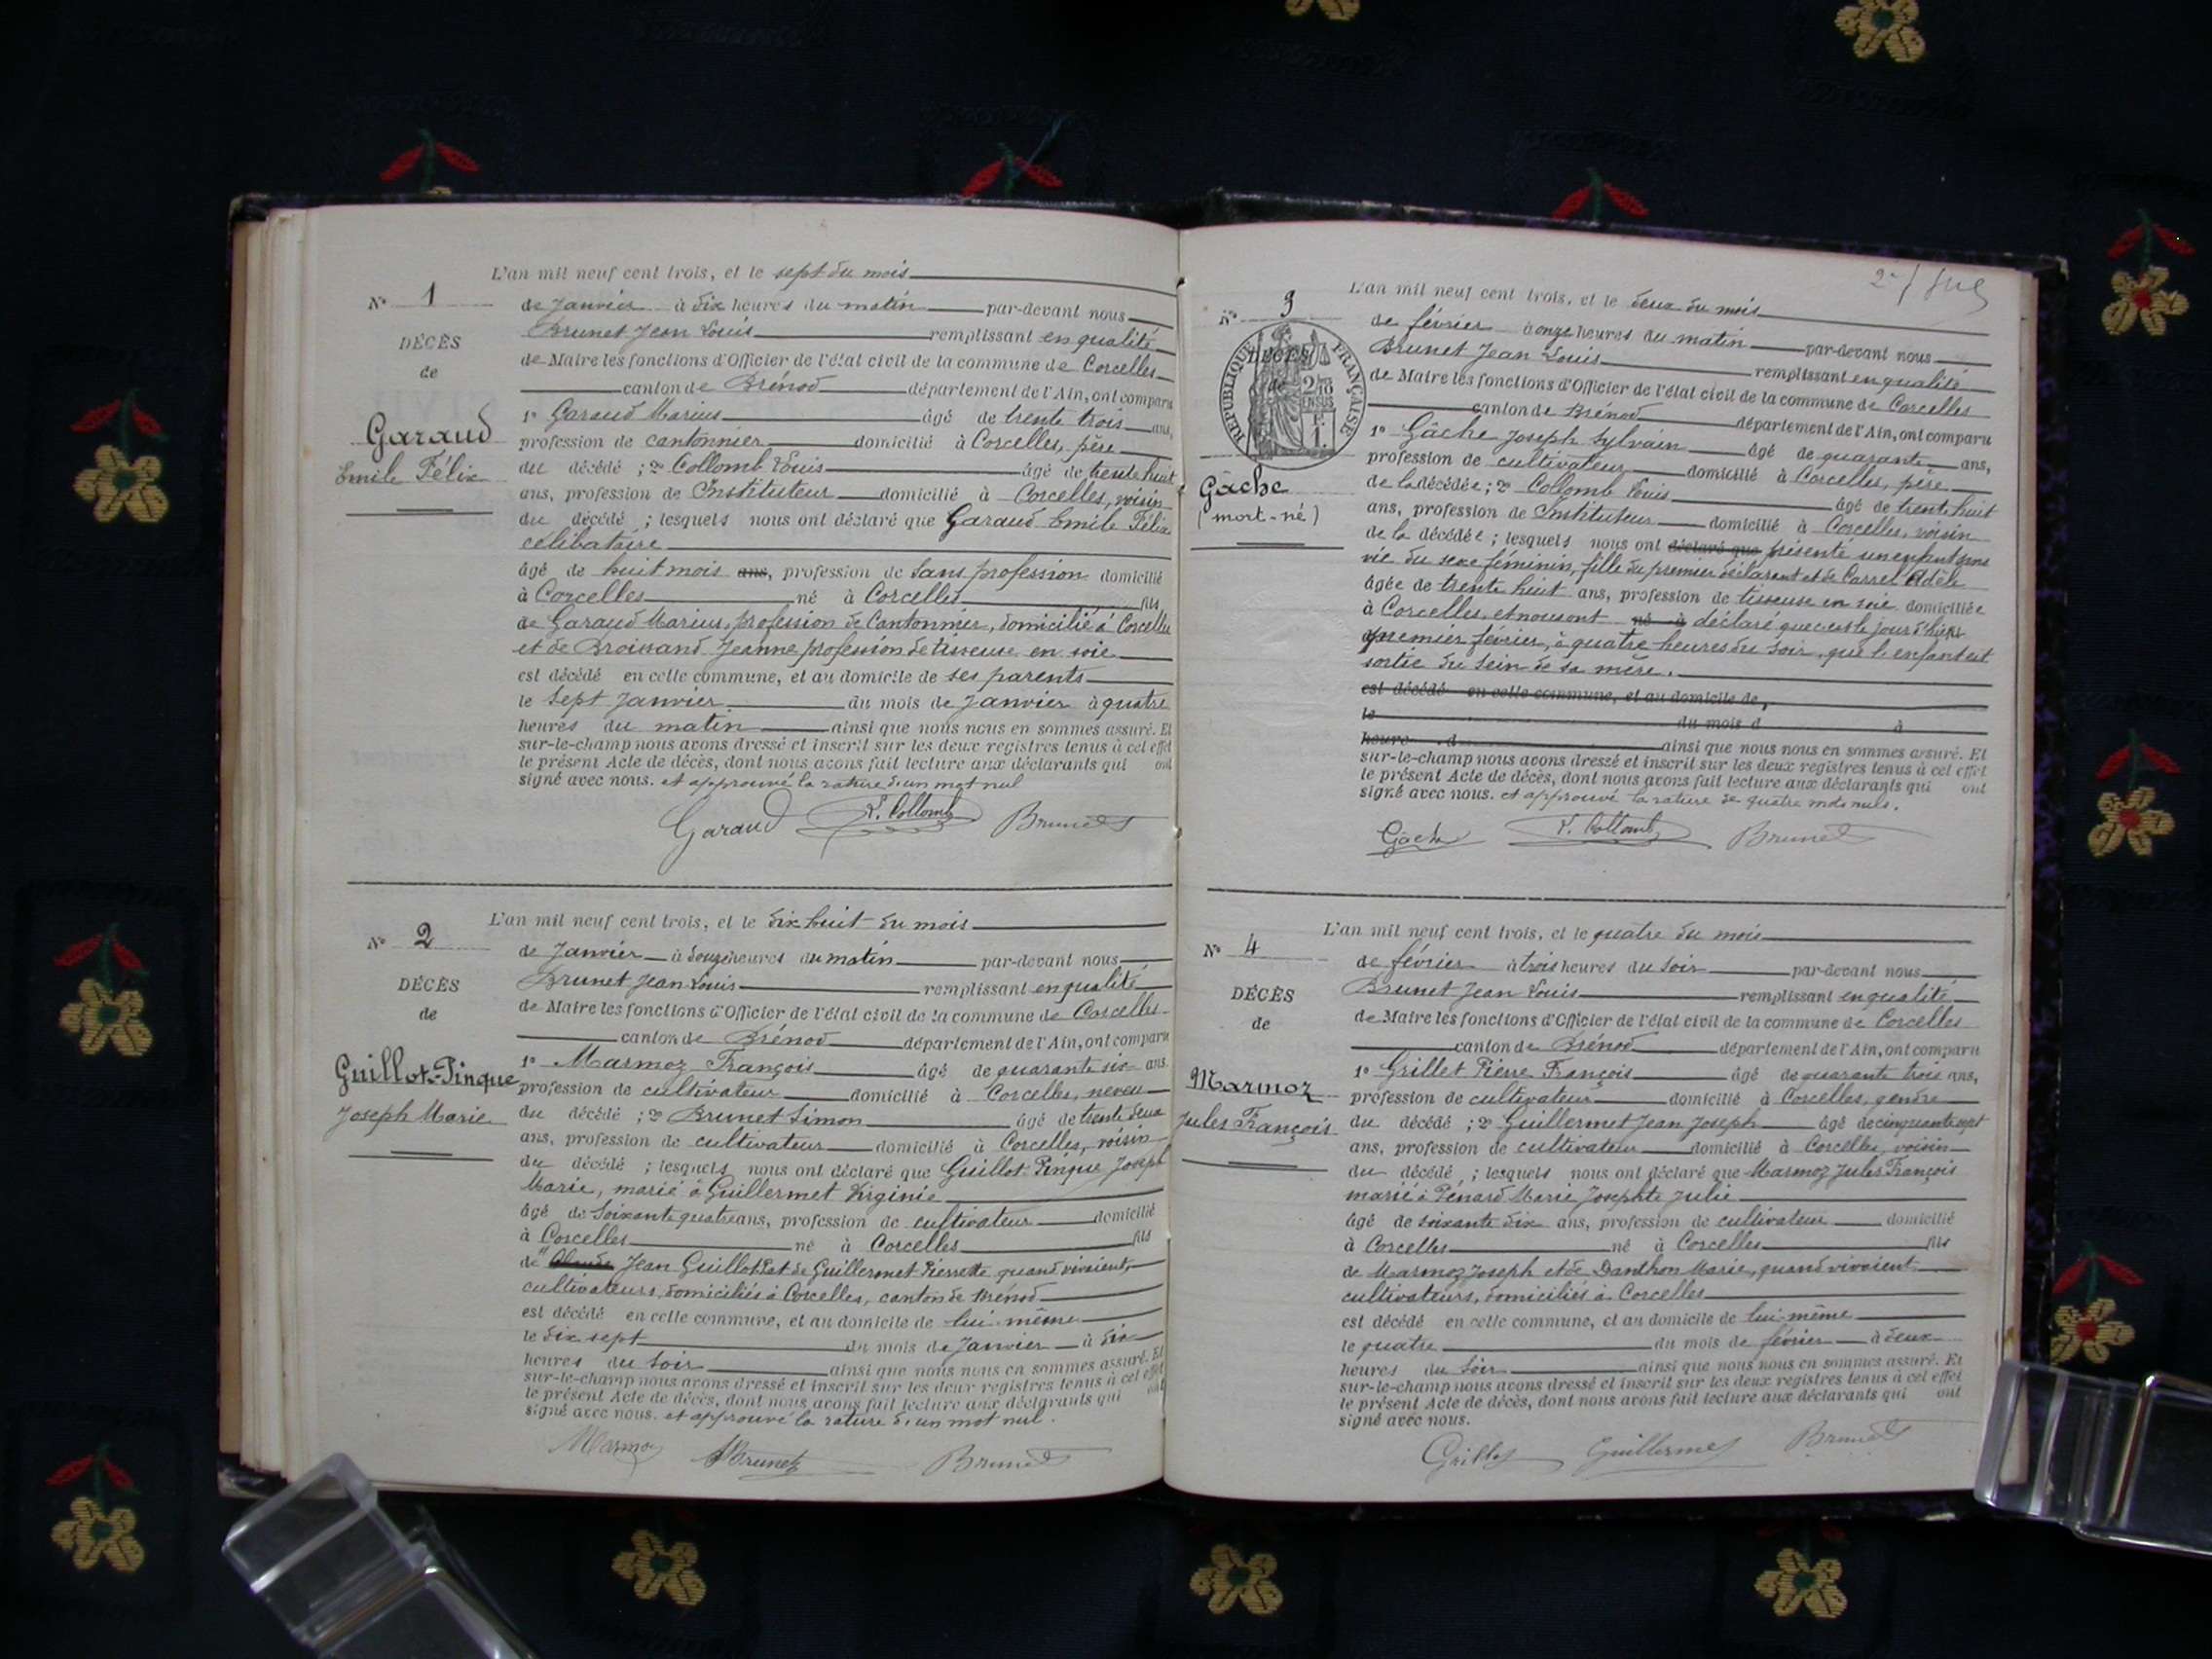 L'an mil neuf cent trois, et le sept du mois
N° 1
de Janvier à dix heures du matin par-devant nous
Brunet Jean Louis remplissant en qualité
DÉCÈS
de Maire les fonctions d'Officier de l'état civil de la commune de Corcelles
de
canton de Brénod département de l'Ain, ont comparu
Garaud
1° Garaud Marius âgé de trente trois ans,
profession de cantonnier domicilié à Corcelles, père
Emile Félix
du décédé ; 2° Collomb Louis âgé de trente huit
ans, profession de Instituteur domicilié à Corcelles, voisin
du décédé ; lesquels nous ont déclaré que Garaud Emile Félix
célibataire
âgé de huit mois ans, profession de sans profession domicilié
à Corcelles né à Corcelles fils
de Garaud Marius, profession de Cantonnier, domicilié à Corcelles
et de Broissand Jeanne profession de tisseuse en soie
est décédé en cette commune, et au domicile de ses parents
le sept Janvier du mois de Janvier à quatre
heures du matin ainsi que nous nous en sommes assuré. Et
sur-le-champ nous avons dressé et inscrit sur les deux registres tenus à cet effet
le présent Acte de décès, dont nous avons fait lecture aux déclarants qui ont
signé avec nous. et approuvé la rature d'un mot nul
Garaud L. Collomb Brunet
L'an mil neuf cent trois, et le dix huit du mois
N° 2
de Janvier à douze heures du matin par-devant nous
Brunet Jean Louis remplissant en qualité
DÉCÈS
de Maire les fonctions d'Officier de l'état civil de la commune de Corcelles
de
canton de Brénod département de l'Ain, ont comparu
Guillot-Pinque
1° Marmoz François âgé de quarante six ans
profession de cultivateur domicilié à Corcelles, neveu
Joseph Marie
du décédé ; 2° Brunet Simon âgé de trente deux
ans, profession de cultivateur domicilié à Corcelles, voisin
du décédé ; lesquels nous ont déclaré que Guillot Pinque Joseph
Marie, marié à Guillermet Virginie
âgé de soixante quatre ans, profession de cultivateur domicilié
à Corcelles né à Corcelles fils
de Claude Jean Guillot P. et de Guillermet Pierrette quand vivaient,
cultivateurs, domiciliés à Corcelles, canton de Brénod
est décédé en cette commune, et au domicile de lui-même
le dix sept du mois de Janvier à dix
heures du soir ainsi que nous nous en sommes assuré. Et
sur-le-champ nous avons dressé et inscrit sur les deux registres tenus à cet effet
le présent Acte de décès, dont nous avons fait lecture aux déclarants qui ont
signé avec nous. et approuvé la rature d'un mot nul.
Marmoz Brunet Brunet
L'an mil neuf cent trois, et le deux du mois
N° 3
de février à onze heures du matin par-devant nous
Brunet Jean Louis remplissant en qualité
DÉCÈS
de
RÉPUBLIQUE FRANÇAISE
de Maire les fonctions d'Officier de l'état civil de la commune de Corcelles
canton de Brénod département de l'Ain, ont comparu
1° Gâche Joseph Sylvain âgé de quarante ans,
profession de cultivateur domicilié à Corcelles, père
Gâche
de la décédée ; 2° Collomb Louis âgé de trente huit
(mort-né)
ans, profession de Instituteur domicilié à Corcelles, voisin
de la décédée ; lesquels nous ont déclaré que présenté un enfant sans
vie du sexe féminin, fille du premier déclarant et de Carrel Adèle
âgée de trente huit ans, profession de tisseuse en soie domiciliée
à Corcelles, et nous ont né à déclaré que c'est le jour d'hier
premier février, à quatre heures du soir, que l'enfant est
sortie du sein de sa mère.
est décédé en cette commune, et au domicile de
le du mois d à
heure d ainsi que nous nous en sommes assuré. Et
sur-le-champ nous avons dressé et inscrit sur les deux registres tenus à cet effet
le présent Acte de décès, dont nous avons fait lecture aux déclarants qui ont
signé avec nous. et approuvé la rature de quatre mots nuls.
Gâche L. Collomb Brunet
L'an mil neuf cent trois, et le quatre du mois
N° 4
de février à trois heures du soir par-devant nous
Brunet Jean Louis remplissant en qualité
DÉCÈS
de Maire les fonctions d'Officier de l'état civil de la commune de Corcelles
de
canton de Brénod département de l'Ain, ont comparu
Marmoz
1° Grillet Pierre François âgé de quarante trois ans,
profession de cultivateur domicilié à Corcelles, gendre
Jules François
du décédé ; 2° Guillermet Jean Joseph âgé de cinquante sept
ans, profession de cultivateur domicilié à Corcelles, voisin
du décédé ; lesquels nous ont déclaré que Marmoz Jules François
marié à Pénard Marie Josephte Julie
âgé de soixante dix ans, profession de cultivateur domicilié
à Corcelles né à Corcelles fils
de Marmoz Joseph et de Danthon Marie, quand vivaient
cultivateurs, domiciliés à Corcelles
est décédé en cette commune, et au domicile de lui-même
le quatre du mois de février à deux
heures du soir ainsi que nous nous en sommes assuré. Et
sur-le-champ nous avons dressé et inscrit sur les deux registres tenus à cet effet
le présent Acte de décès, dont nous avons fait lecture aux déclarants qui ont
signé avec nous.
Grillet Guillermet Brunet